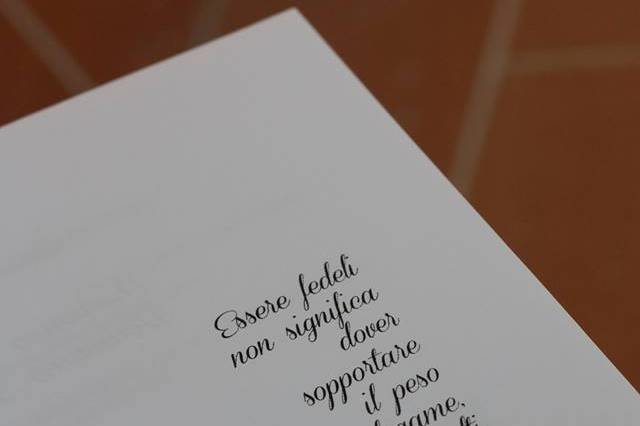 Essere fedeli
non significa
dover
sopportare
il peso